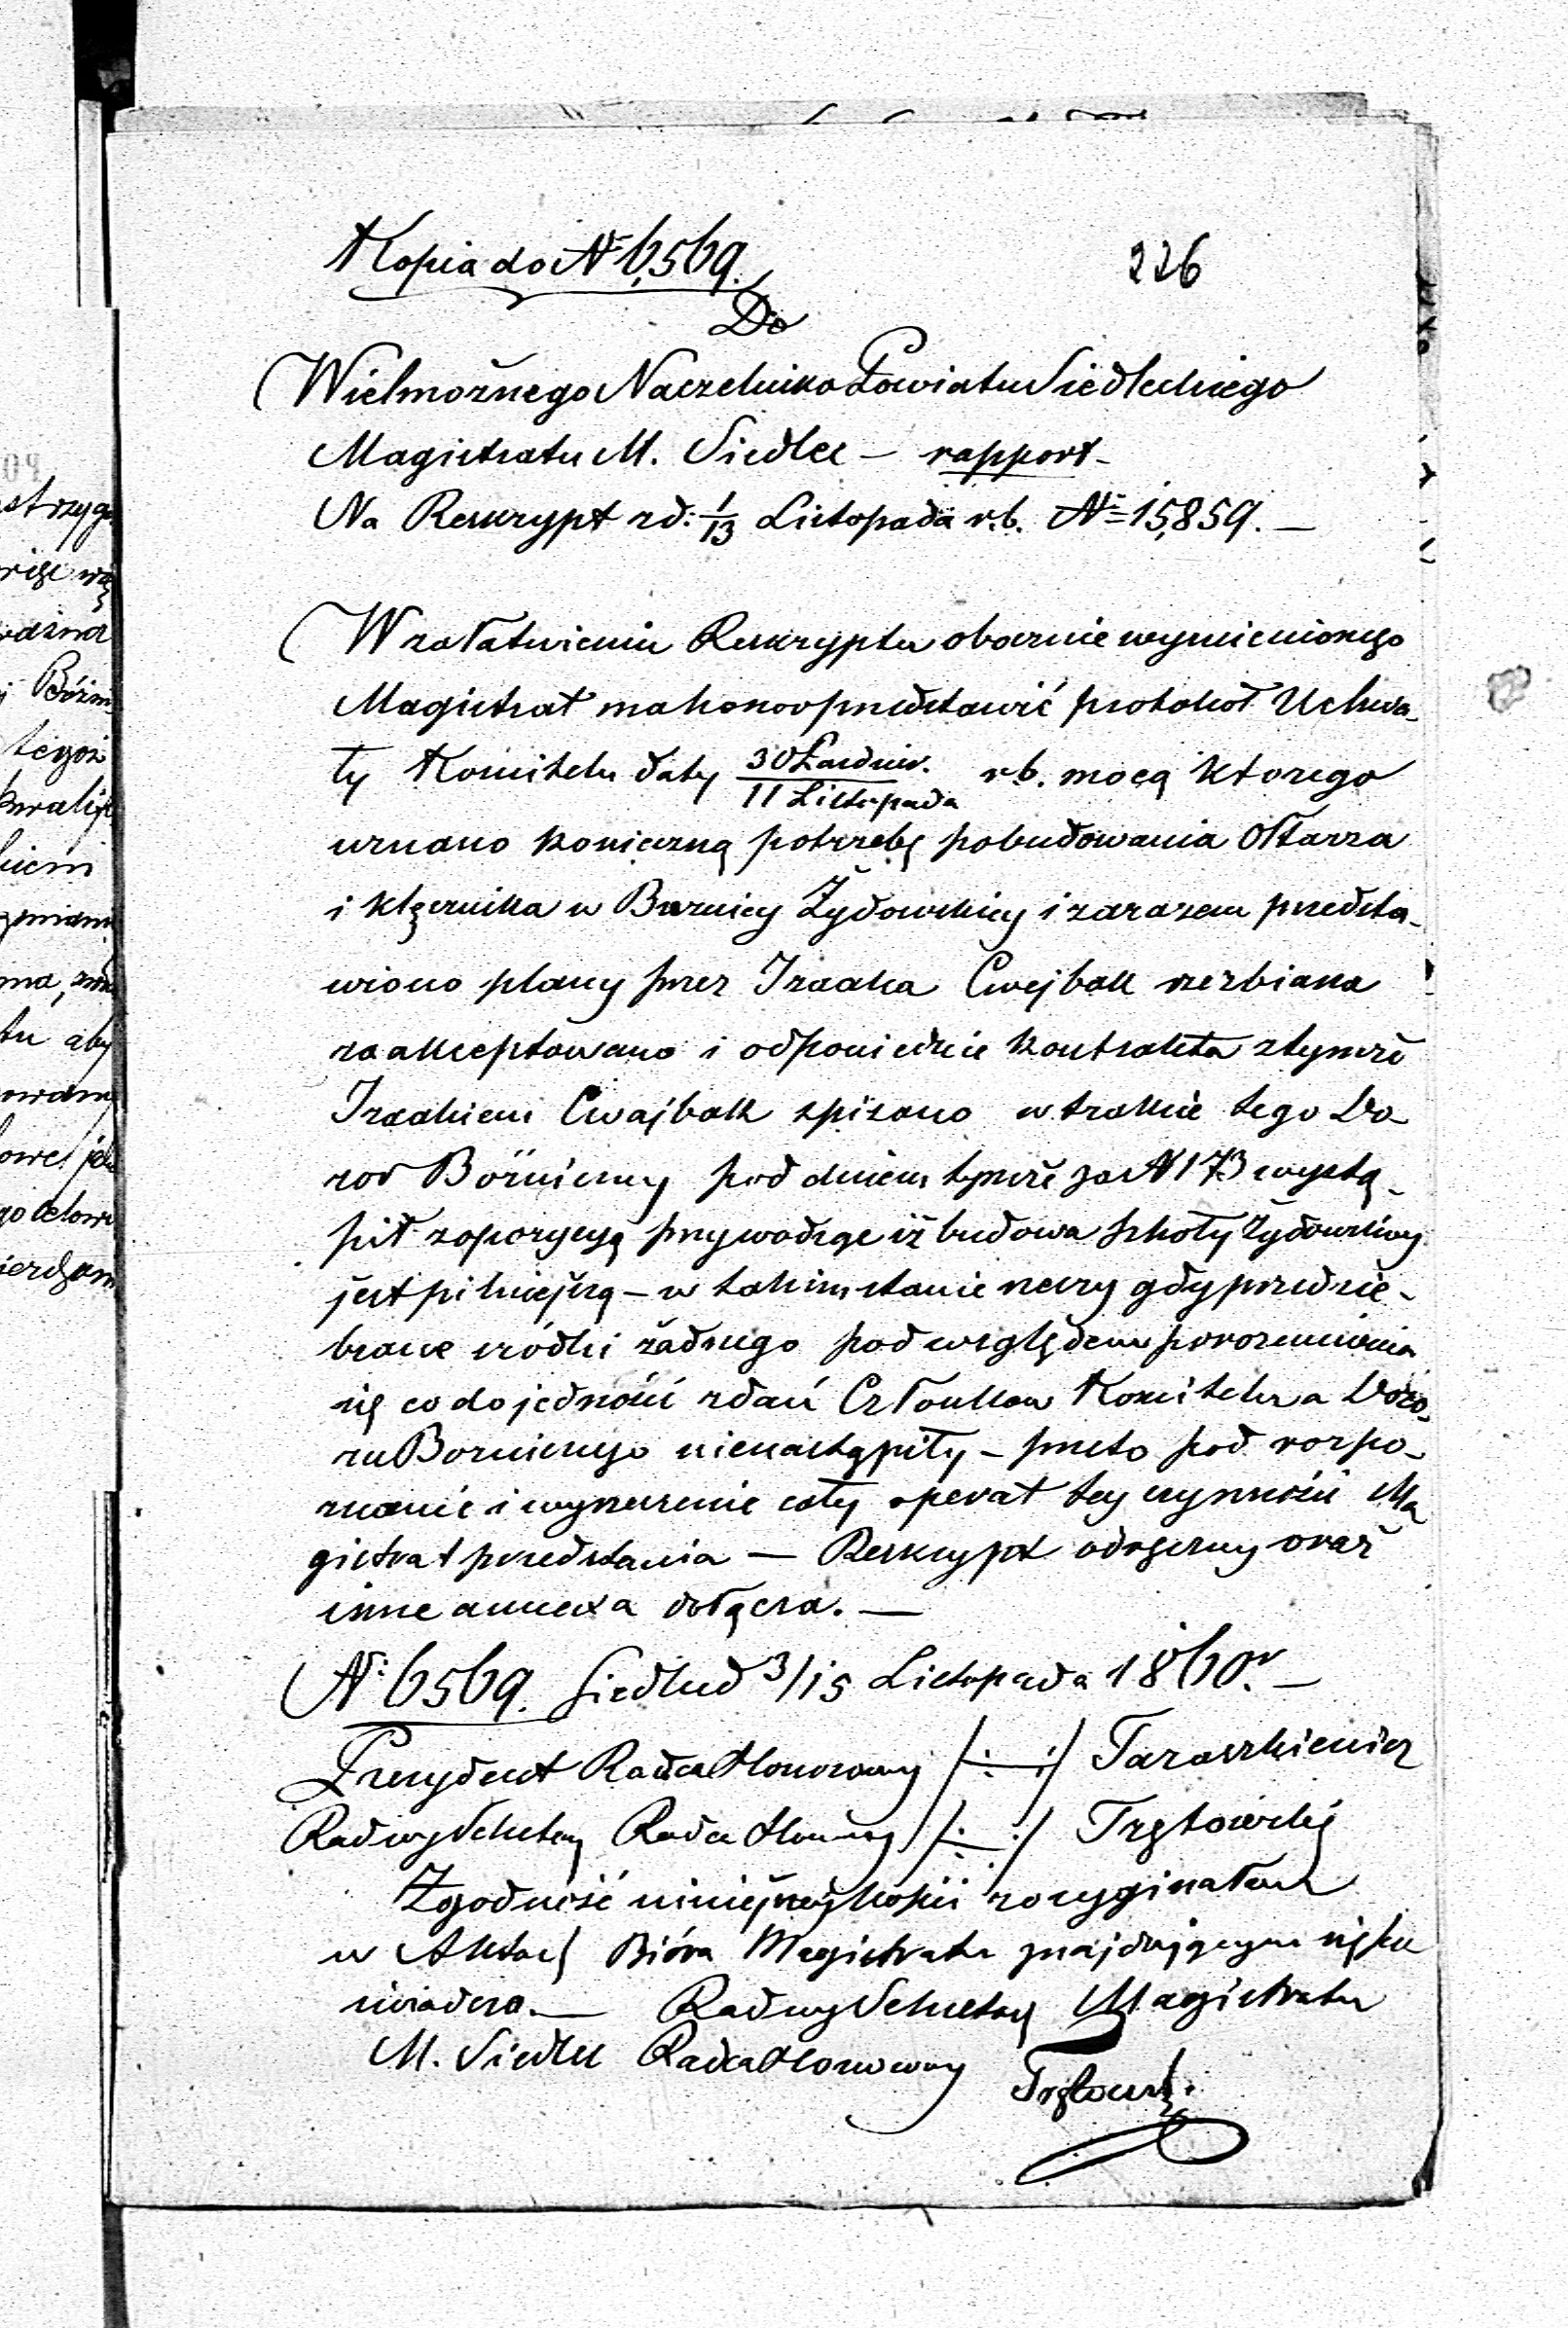 Kopia do № 6,569.
226
Do
Wielmożnego Naczelnika Powiatu Siedleckiego
Magistratu M. Siedlec – rapport –
Na Reskrypt z d: 1/13 Listopada r.b. № 15,859. –
W załatwieniu Reskryptu obocznie wymienionego
Magistrat ma honor przedstawić protokoł Uchwa-
ły Komitetu daty 30 Paździer. / 11 Listopada r.b. mocą ktorego
uznano konieczną potrzebę pobudowania Ołtarza
i klęcznika w Bożnicy Żydowskiey i zarazem przedsta-
wiono plany przez Izaaka Cwejbak rzezbiarza
zaakceptowano i odpowiednie kontrakta z tymże
Izaakiem Cwajbak spisano w trakcie tego Do
zor Bóżniczny pod dniem tymże za N 173 wystą-
pił z opozycyą przywodząc iż budowa szkoły Żydowskiey
jest pilniejszą – w takim stanie rzeczy gdy przedsię-
brane sródki żadnego pod względem porozumienia
się co do jedności zdań Członkow Komitetu a Dozo-
ru Bożnicznego nienastąpiły – przeto pod rozpo-
znanie i wyrzeczenie cały operat tey czynności Ma
gistrat przedstawia — Reskrypt odręczny oraz
inne annexa dołącza. —
№ 6569. Siedlce d 3/15 Listopada 1860 r. –
Prezydent Radca Honorowy /:—:/ Taraszkiewicz
Radny Sekretarz Radca Honorowy /:—:/ Trętowski
Zgodność niniejszej kopii z oryginałem
w Aktach Bióra Magistratu znajdującym się po
świadcza. — Radny Sekretarz Magistratu
M. Siedlec Radca Honorowy